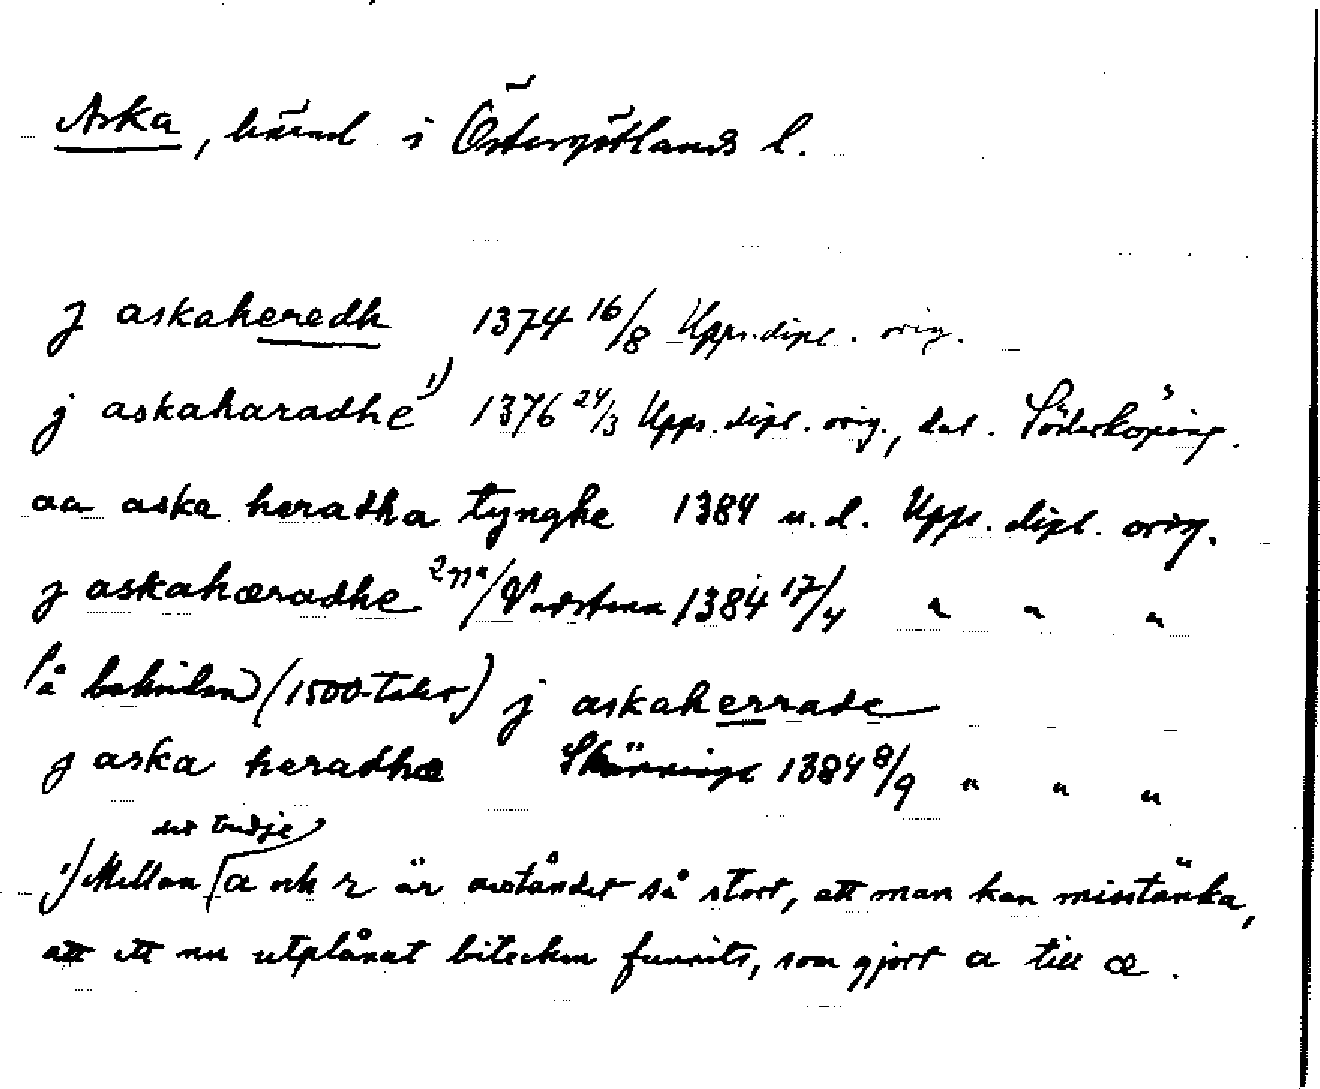 Aska, härad i Östergötlands l.
j askaheredh 1374 16/8 Upps. dipl. orig.
j askaharadhe 1) 1376 24/3 Upps. dipl. orig., dat. Söderköping.
aa aska heradha tynghe 1384 u.d. Upps. dipl. orig.
j askahæradhe Vadstena 1384 17/4 " " "
På baksidan (1500-talet) j askaherrade
j aska heradhæ Skänninge 1384 8/9 " " "
det tredje
1) Mellan a och r är avståndet så stort, att man kan misstänka,
att ett nu utplånat bitecken funnits, som gjort a till æ.